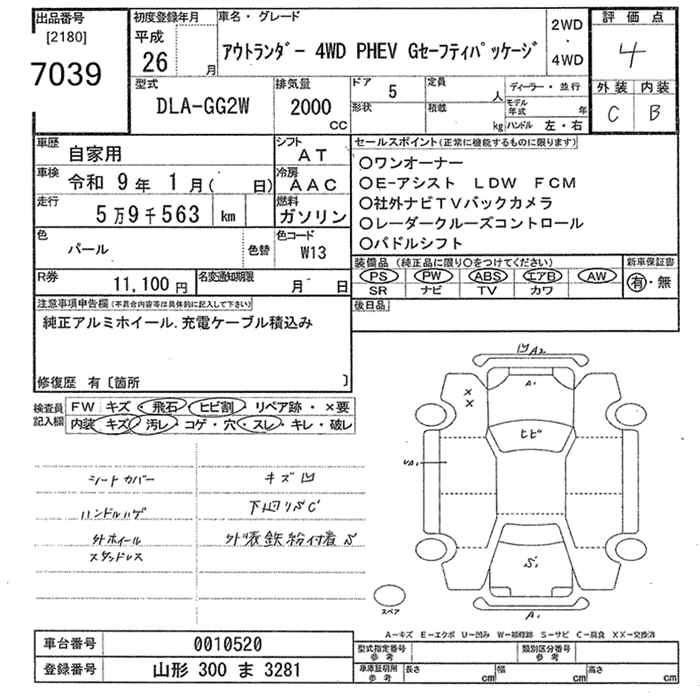 出品番号
[2180]
7039
初度登録年月
平成
26
月
車名・グレード
アウトランダー 4WD PHEV Gセーフティパッケージ
2WD
・
4WD
評価点
4
外装 内装
C B
型式
DLA-GG2W
排気量
2000
CC
ドア
5
形状
定員
人
積載
kg
ディーラー・並行
モデル年式
年
ハンドル 左・右
車歴
自家用
シフト
AT
車検
令和 9年 1月( 日)
冷房
AAC
走行
5万9千563 km
燃料
ガソリン
色
パール
色替
色コード
W13
R券
11,100円
名変通知期限
月 日
セールスポイント(正常に機能するものに限ります)
○ワンオーナー
○E-アシスト LDW FCM
○社外ナビTVバックカメラ
○レーダークルーズコントロール
○パドルシフト
装備品(純正品に限り○をつけてください)
PS PW ABS エアB AW
SR ナビ TV カワ
新車保証書
有・無
後日品
注意事項申告欄(不具合内容等は具体的に記入して下さい)
純正アルミホイール.充電ケーブル積込み
修復歴 有〔箇所 〕
検査員記入欄
FW キズ・飛石・ヒビ割・リペア跡・×要
内装 キズ・汚レ・コゲ・穴・スレ・キレ・破レ
シートカバー
ハンドルハゲ
外ホイール
スタッドレス
キズ凹
下廻りSC
外装鉄粉付着S
凹A2
A1
×
×
ヒビ
UA1
S1
A1
スペア
A-キズ E-エクボ U-凹み W-補修跡 S-サビ C-腐食 XX-交換済
車台番号
0010520
登録番号
山形 300 ま 3281
型式指定番号
参考
類別区分番号
参考
車庫証明用
参考
長さ
cm
幅
cm
高さ
cm